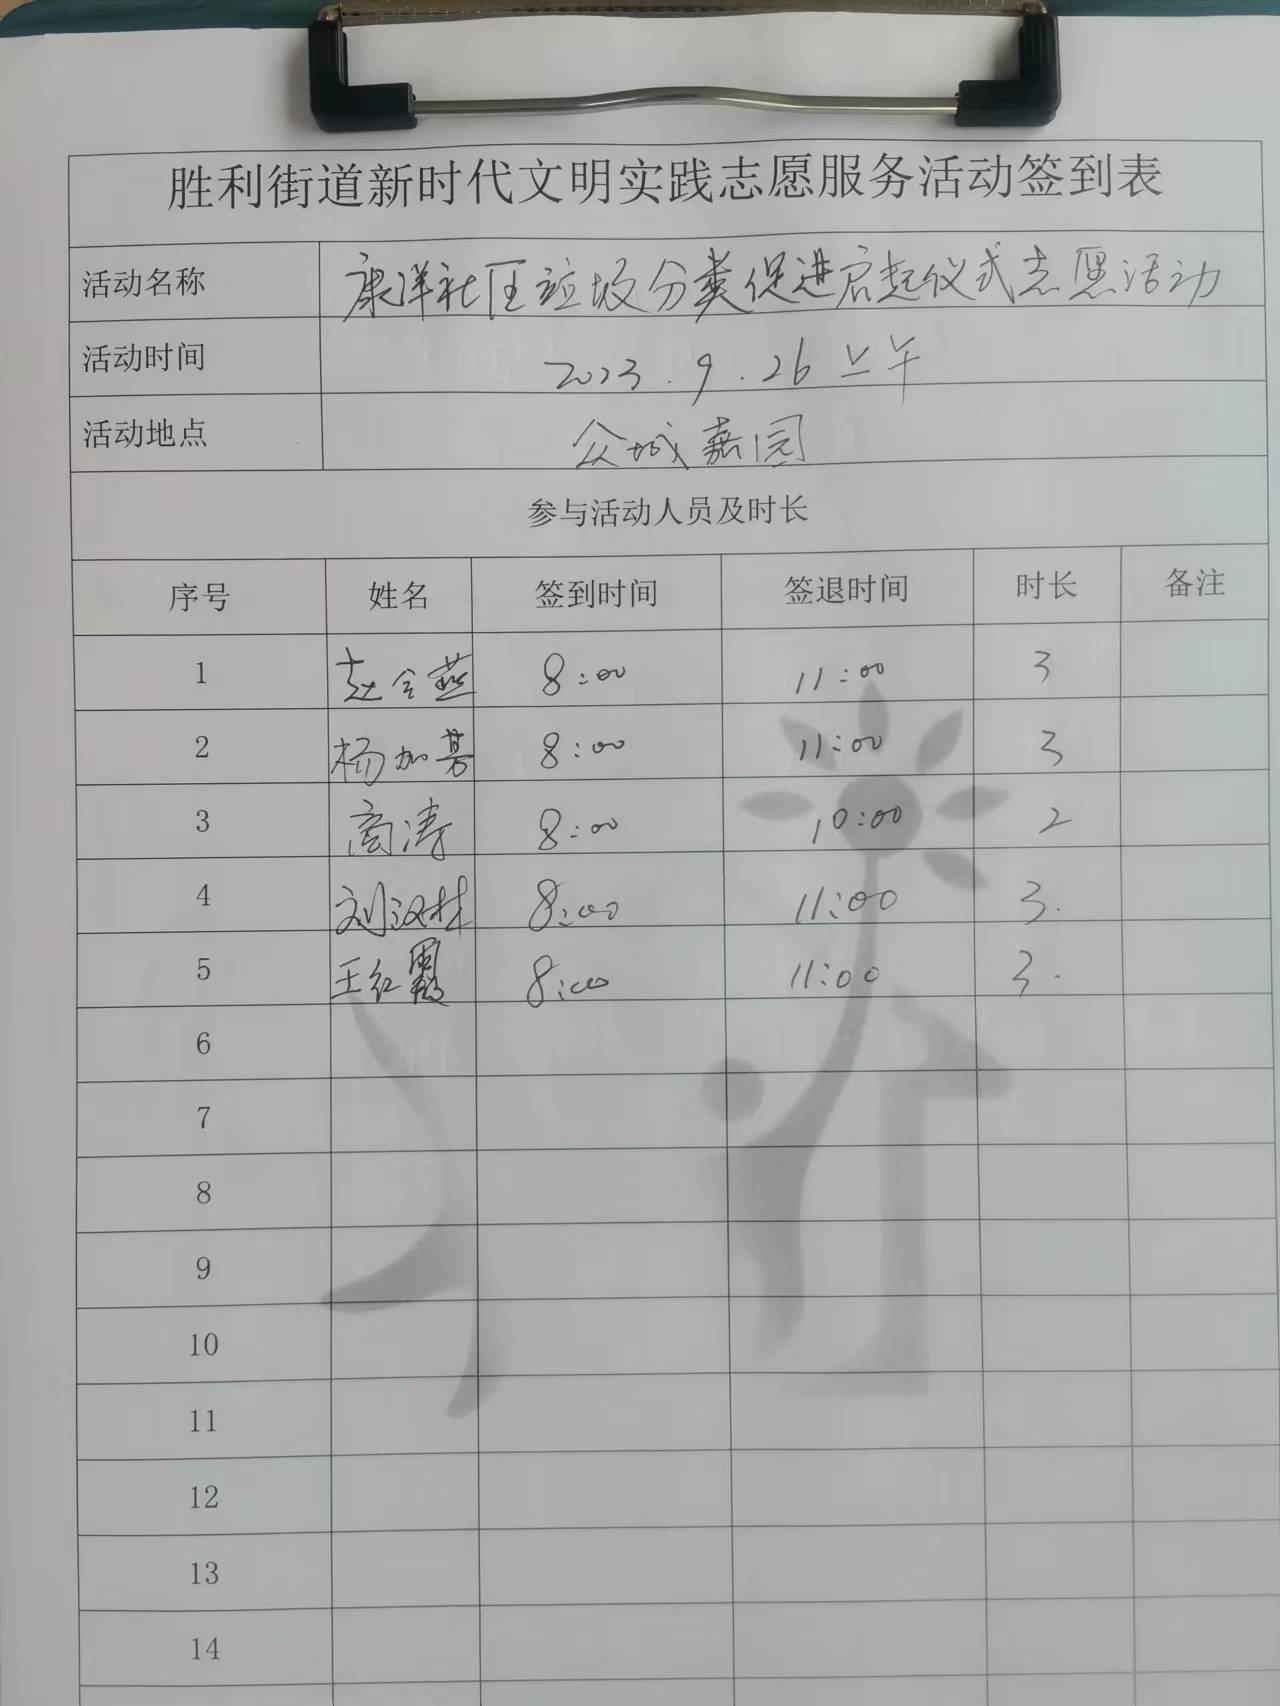 胜利街道新时代文明实践志愿服务活动签到表
活动名称 康洋社区垃圾分类促进启起仪式志愿活动
活动时间 2023.9.26 上午
活动地点 众城嘉园
参与活动人员及时长
序号 姓名 签到时间 签退时间 时长 备注
1 赵会燕 8:00 11:00 3
2 杨加 8:00 11:00 3
3 高涛 8:00 10:00 2
4 刘汉林 8:00 11:00 3.
5 王红霞 8:00 11:00 3.
6
7
8
9
10
11
12
13
14